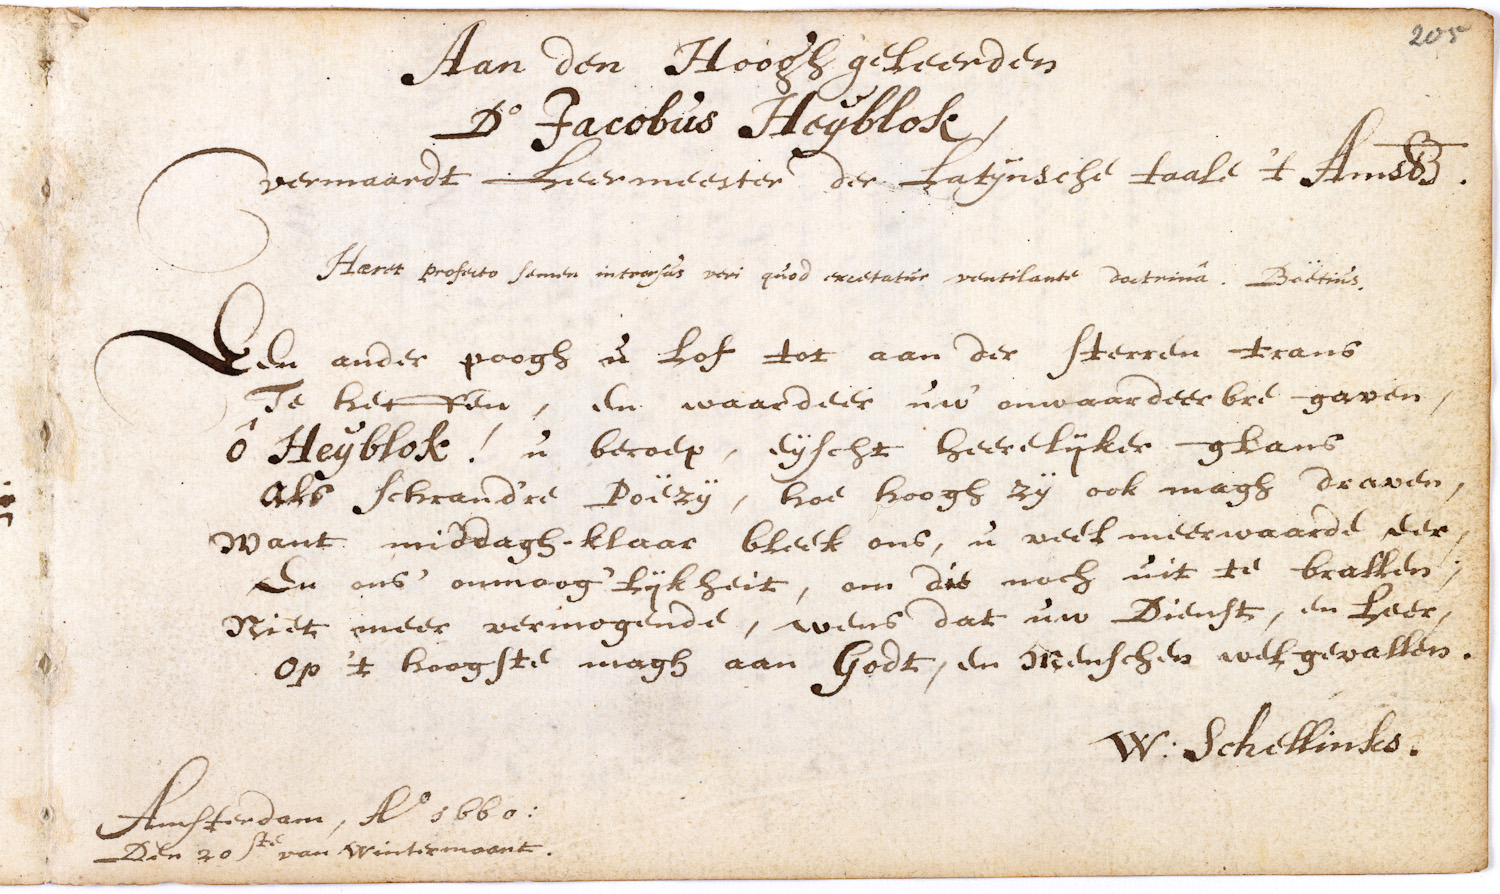 205
Aan den Hoogh geleerden
Do Jacobus Heyblok,
vermaardt Leermeester der Latÿnsche taale 't Amstd.
Hæret profecto semen introrsus veri quod excitatur ventilante doctrinâ. Boëtius.
Een ander poogh u lof tot aan der sterren trans
Te heffen, en waardeer uw onwaardeerbre gaven,
ô Heÿblok! u beroep, eÿscht heerelÿker glans
Als schrand're Poëzÿ, hoe hoogh zÿ ook magh draven,
Want middagh-klaar bleek ons, u veel meerwaarde eer,
En ons' onmoog'lÿkheit, om die noch uit te brallen;
Niet meer vermogende, wens dat uw Dienst, en Leer,
Op 't hoogste magh aan Godt, en Menschen welgevallen.
W: Schellinks.
Amsterdam, Ao 1660:
Den 20ste van Wintermaant.